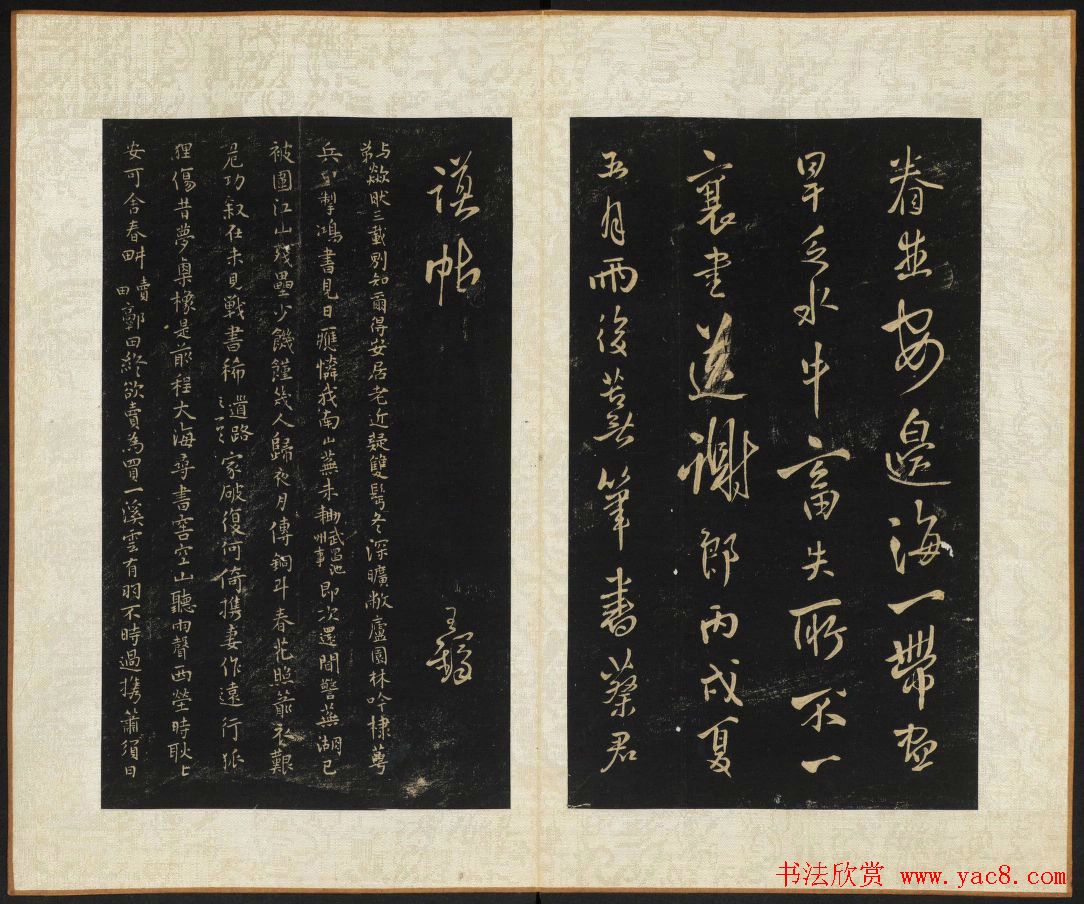 春並安邊海一帶盡
旱乏水牛畜失所不一
襄書送謝郎丙戌夏
五月雨後蕪筆書蔡君
謨帖 王鐸
三載別知爾得安居老近疑雙鬢冬深曠敝廬園林吟棣萼
兵 掣鴻書見日應憐我南山蕪未耕 即次還聞警蕪湖已
被圍江山殘壘少饑饉幾人歸夜月傳銅斗春花照箭衣艱
危功敘在未見戰書稀道路家破復何倚攜妻作遠行狐
狸傷昔夢 橡是前程大海尋書宮空山聽雨聲西塋時耿耿
安可舍春畊 賣田 田終欲賣為買一溪雲有羽不時過攜簫須日
书法欣赏 www.yac8.com